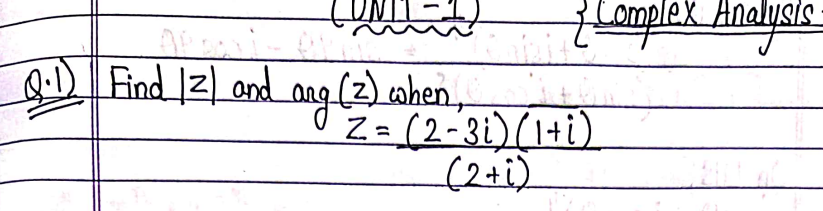 (UNIT-1) { Complex Analysis
Q.1) Find |z| and arg(z) when,
z = (2-3i)(1+i)‾
(2+i)